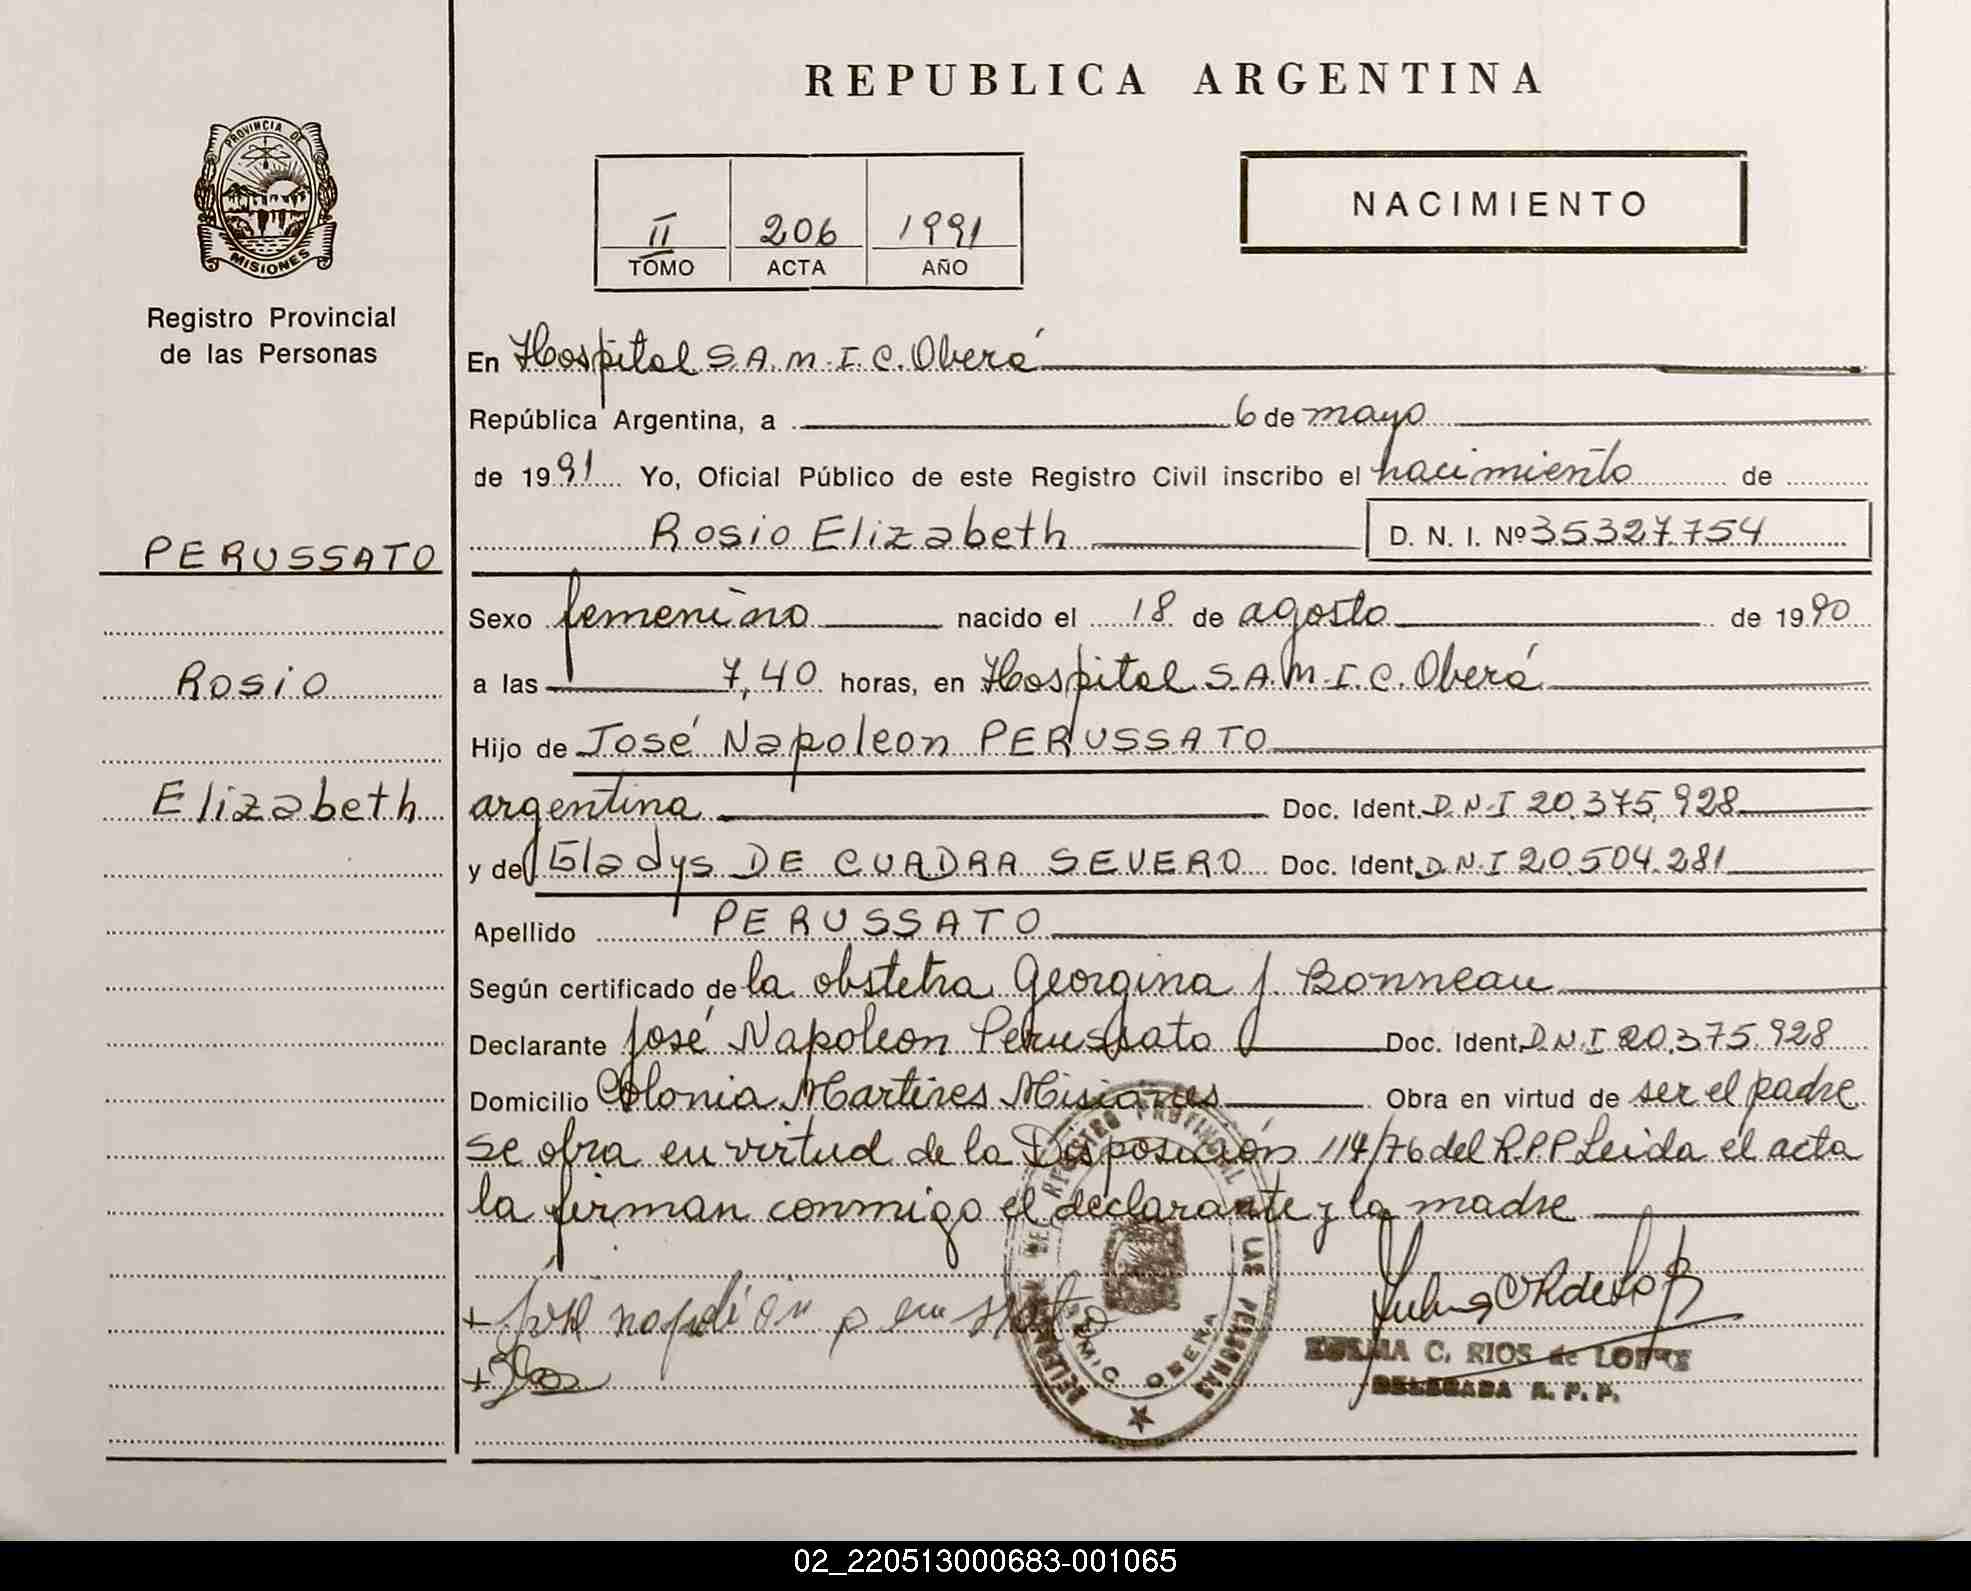 REPUBLICA ARGENTINA
PROVINCIA DE
MISIONES
Registro Provincial
de las Personas
II 206 1991
TOMO ACTA AÑO
NACIMIENTO
En Hospital S.A.M.I.C. Oberá
República Argentina, a 6 de mayo
de 1991 Yo, Oficial Público de este Registro Civil inscribo el nacimiento de
Rosio Elizabeth D. N. I. Nº 35327.754
PERUSSATO
Rosio
Elizabeth
Sexo femenino nacido el 18 de agosto de 1990
a las 7,40 horas, en Hospital S.A.M.I.C. Oberá
Hijo de José Napoleon PERUSSATO
argentina Doc. Ident. D.N.I 20.375.928
y de Gladys DE CUADRA SEVERO Doc. Ident. D.N.I 20.504.281
Apellido PERUSSATO
Según certificado de la obstetra Georgina J. Bonneau
Declarante José Napoleon Perussato Doc. Ident. D.N.I 20.375.928
Domicilio Colonia Martires Misiones Obra en virtud de ser el padre
se obra en virtud de la Disposición 114/76 del R.P.P Leida el acta
la firman conmigo el declarante y la madre
REGISTRO PROVINCIAL DE LAS PERSONAS
OBERA
C. RIOS de
DELEGADA R. P. P.
02_220513000683-001065